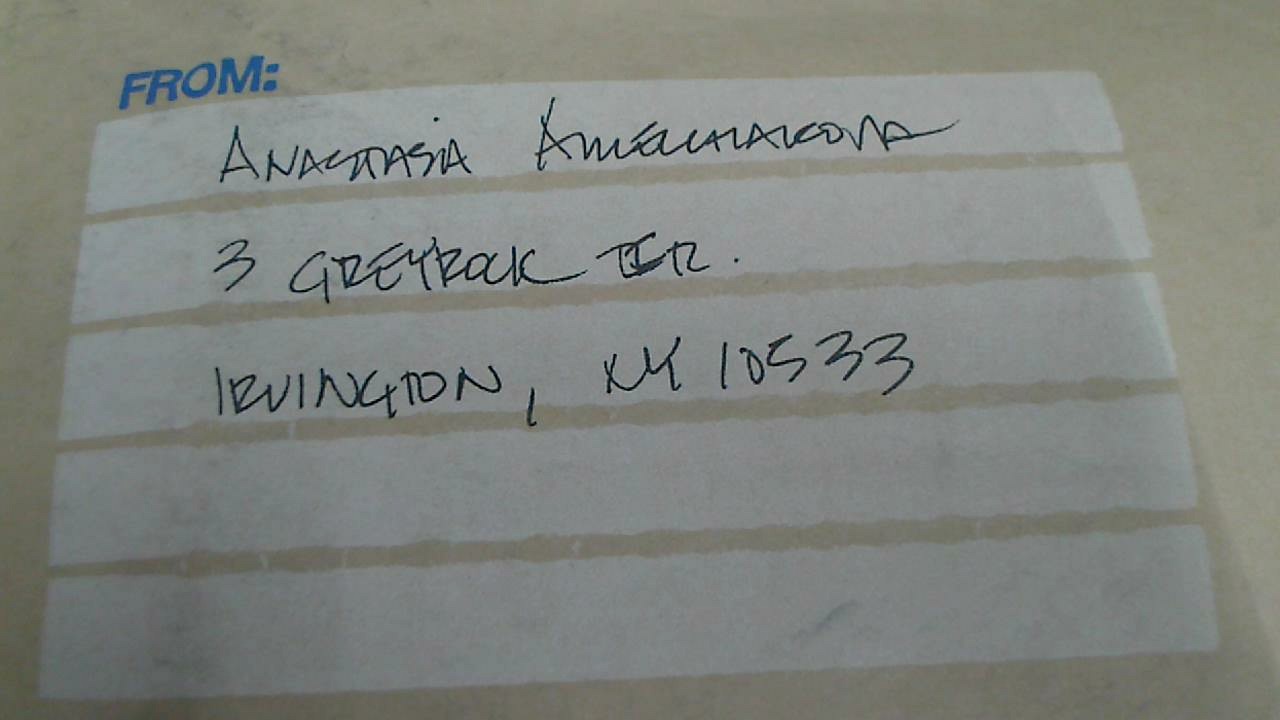 FROM:
ANASTASIA
3 GREYROCK TER.
IRVINGTON, NY 10533